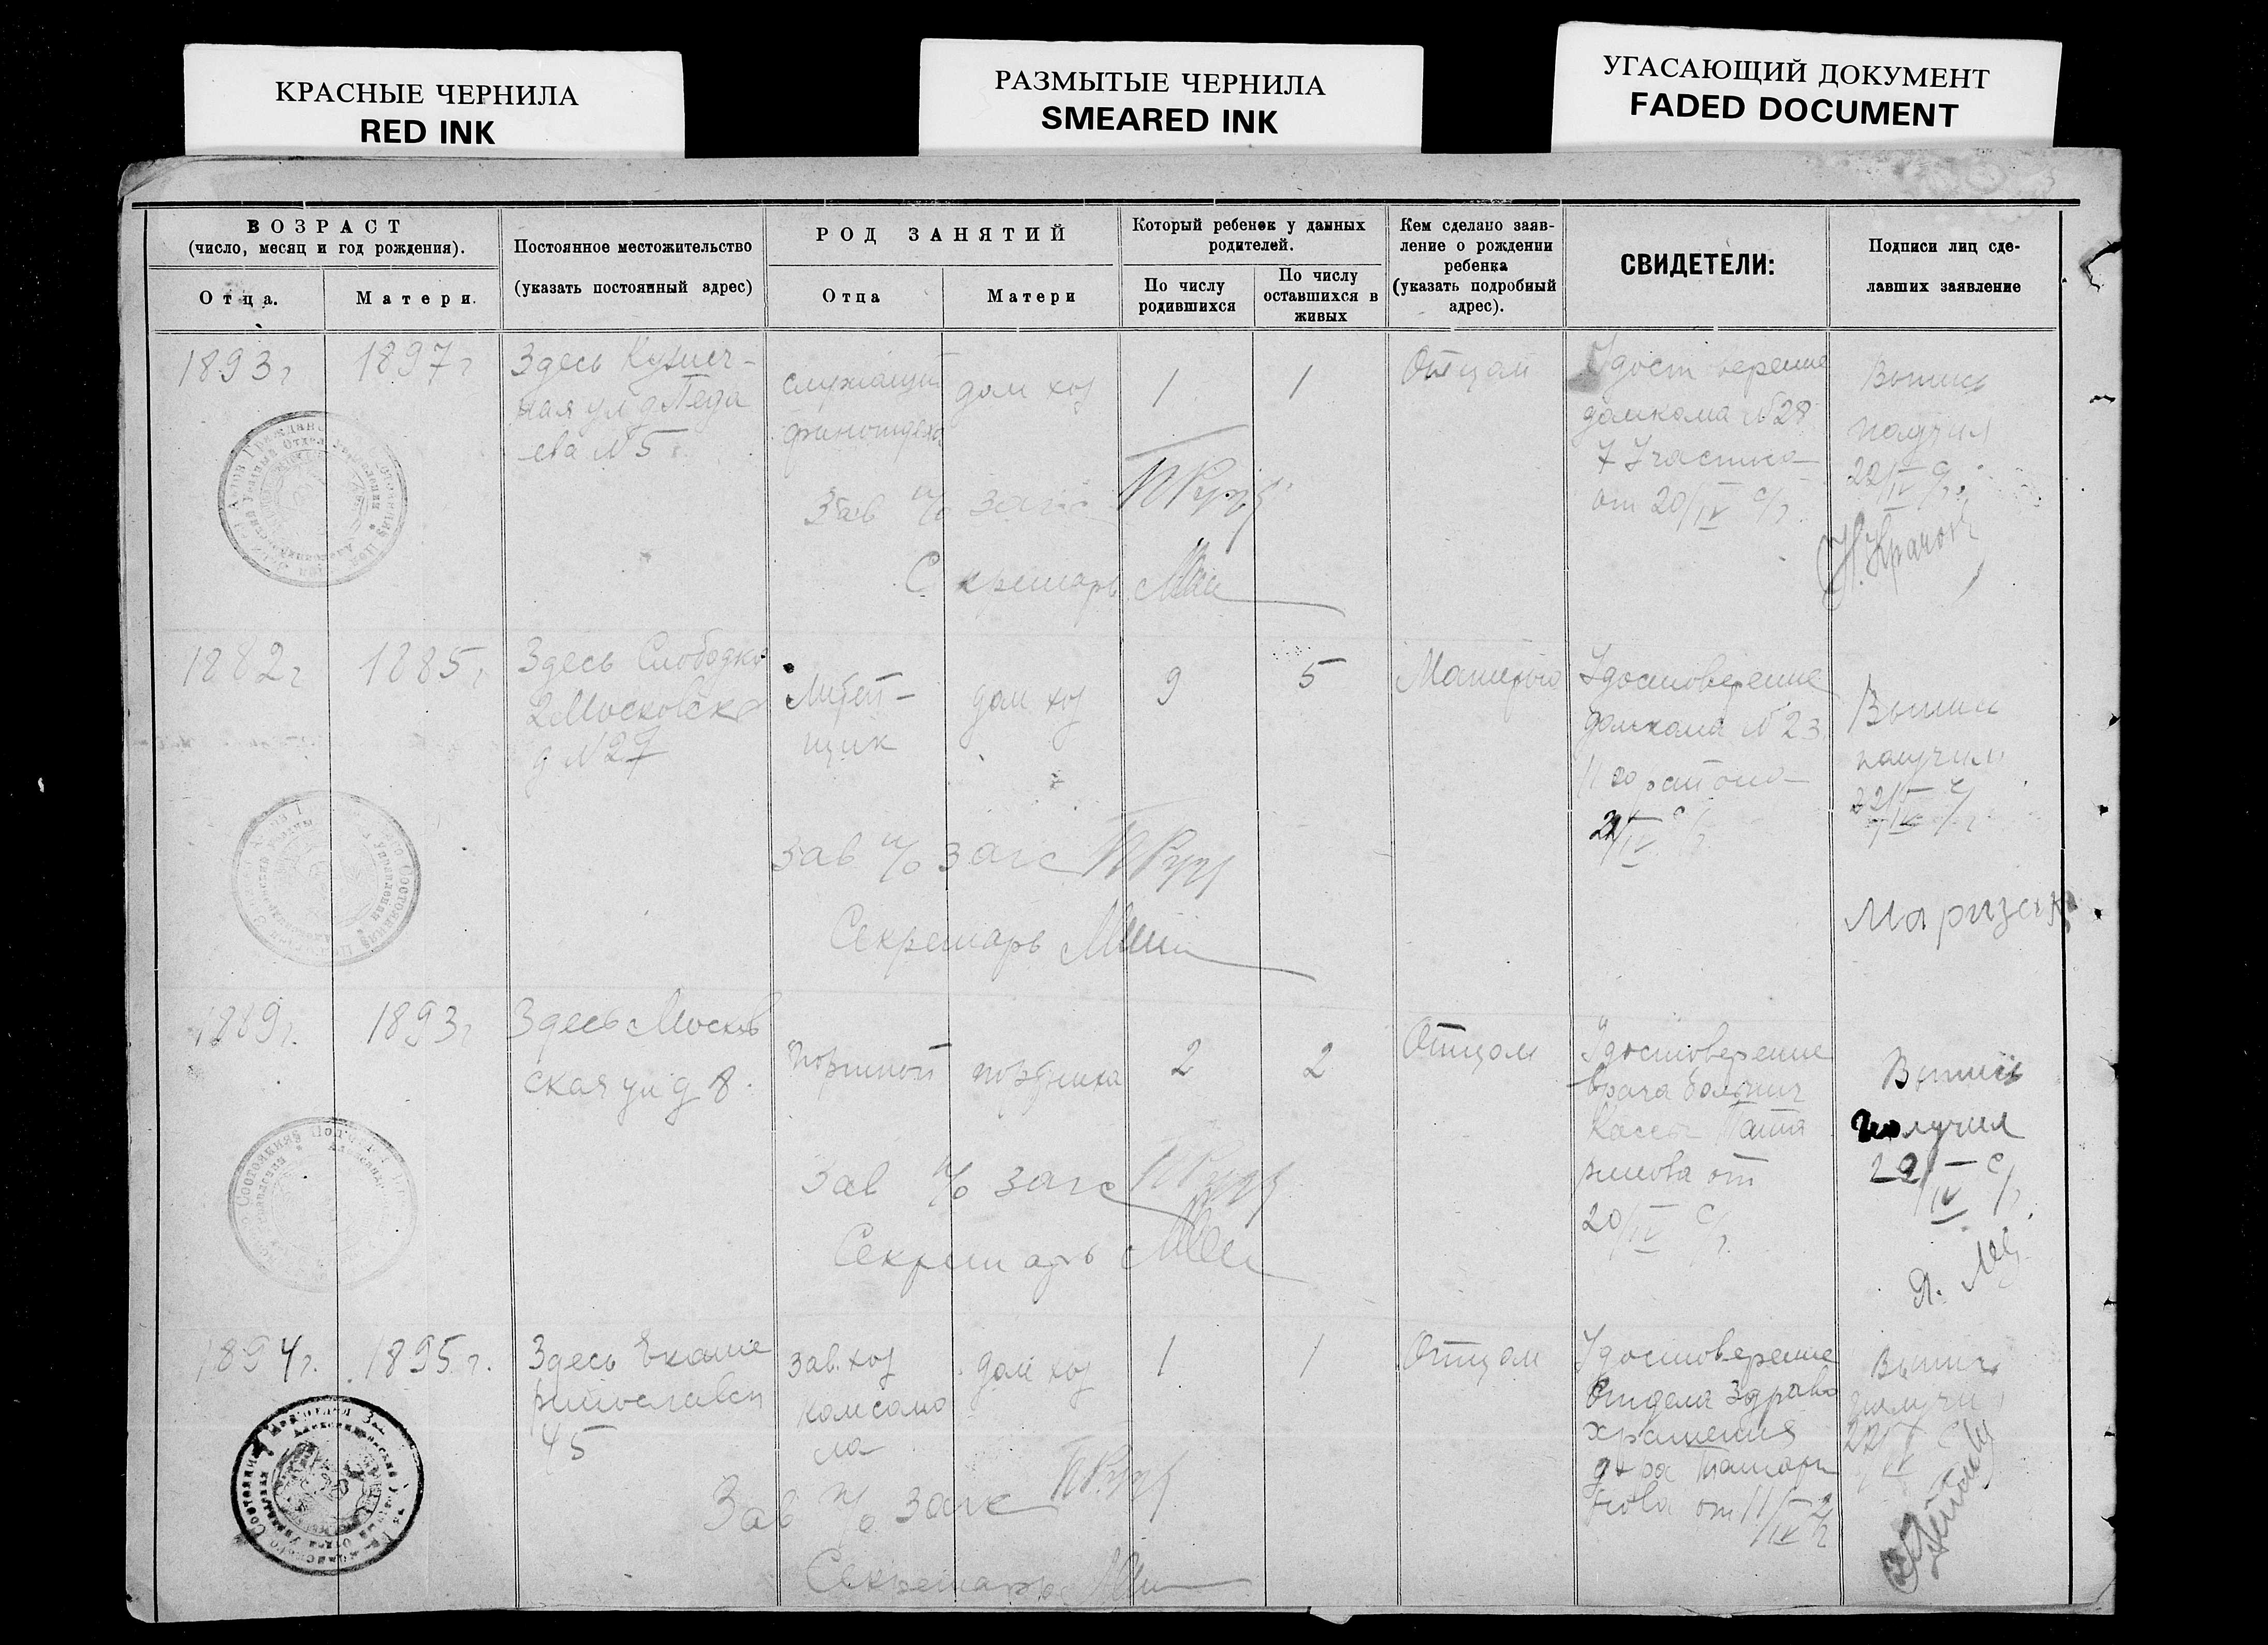 КРАСНЫЕ ЧЕРНИЛА
RED INK
РАЗМЫТЫЕ ЧЕРНИЛА
SMEARED INK
УГАСАЮЩИЙ ДОКУМЕНТ
FADED DOCUMENT
ВОЗРАСТ
(число, месяц и год рождения).
Отца.
Матери.
Постоянное местожительство
(указать постоянный адрес)
РОД ЗАНЯТИЙ
Отца
Матери
Который ребенок у данных
родителей.
По числу
родившихся
По числу
оставшихся в
живых
Кем сделано заяв-
ление о рождении
ребенка
(указать подробный
адрес).
СВИДЕТЕЛИ:
Подписи лиц сде-
лавших заявление
1893 г
1897 г
Здесь Кузнеч-
ная ул д
ева №5
служащий
финотдела
дом хоз
1
1
Отцом
Удостоверение
домкома №28
7 Участка
от 20/IV с/г.
Выпись
получил
22/IV с/г.
Зав п/о загс
Секретарь
1882 г
1885 г
Здесь Слободка
2 Московска
д №27
дом хоз
9
5
Матерью
Удостоверение
домкома №23
11 го района
21/IV с/г
Выпись
получил
22/IV с/г
Зав п/о загс
Секретарь
1889 г.
1893 г
Здесь Москов
ская ул д 8.
портной
портниха
2
2
Отцом
Удостоверение
врача больнич
Кассы
от
20/IV с/г.
Выпись
получил
22/IV с/г.
Зав п/о загс
Секретарь
1894 г.
1895 г.
Здесь Екате
ринославск
45
зав. хоз
комсомо
ла
дом хоз
1
1
Отцом
Удостоверение
Отдела Здраво
хранения
д-ра
от 11/IV с/г
Выпись
получил
22/IV с/г
Зав п/о загс
Секретарь